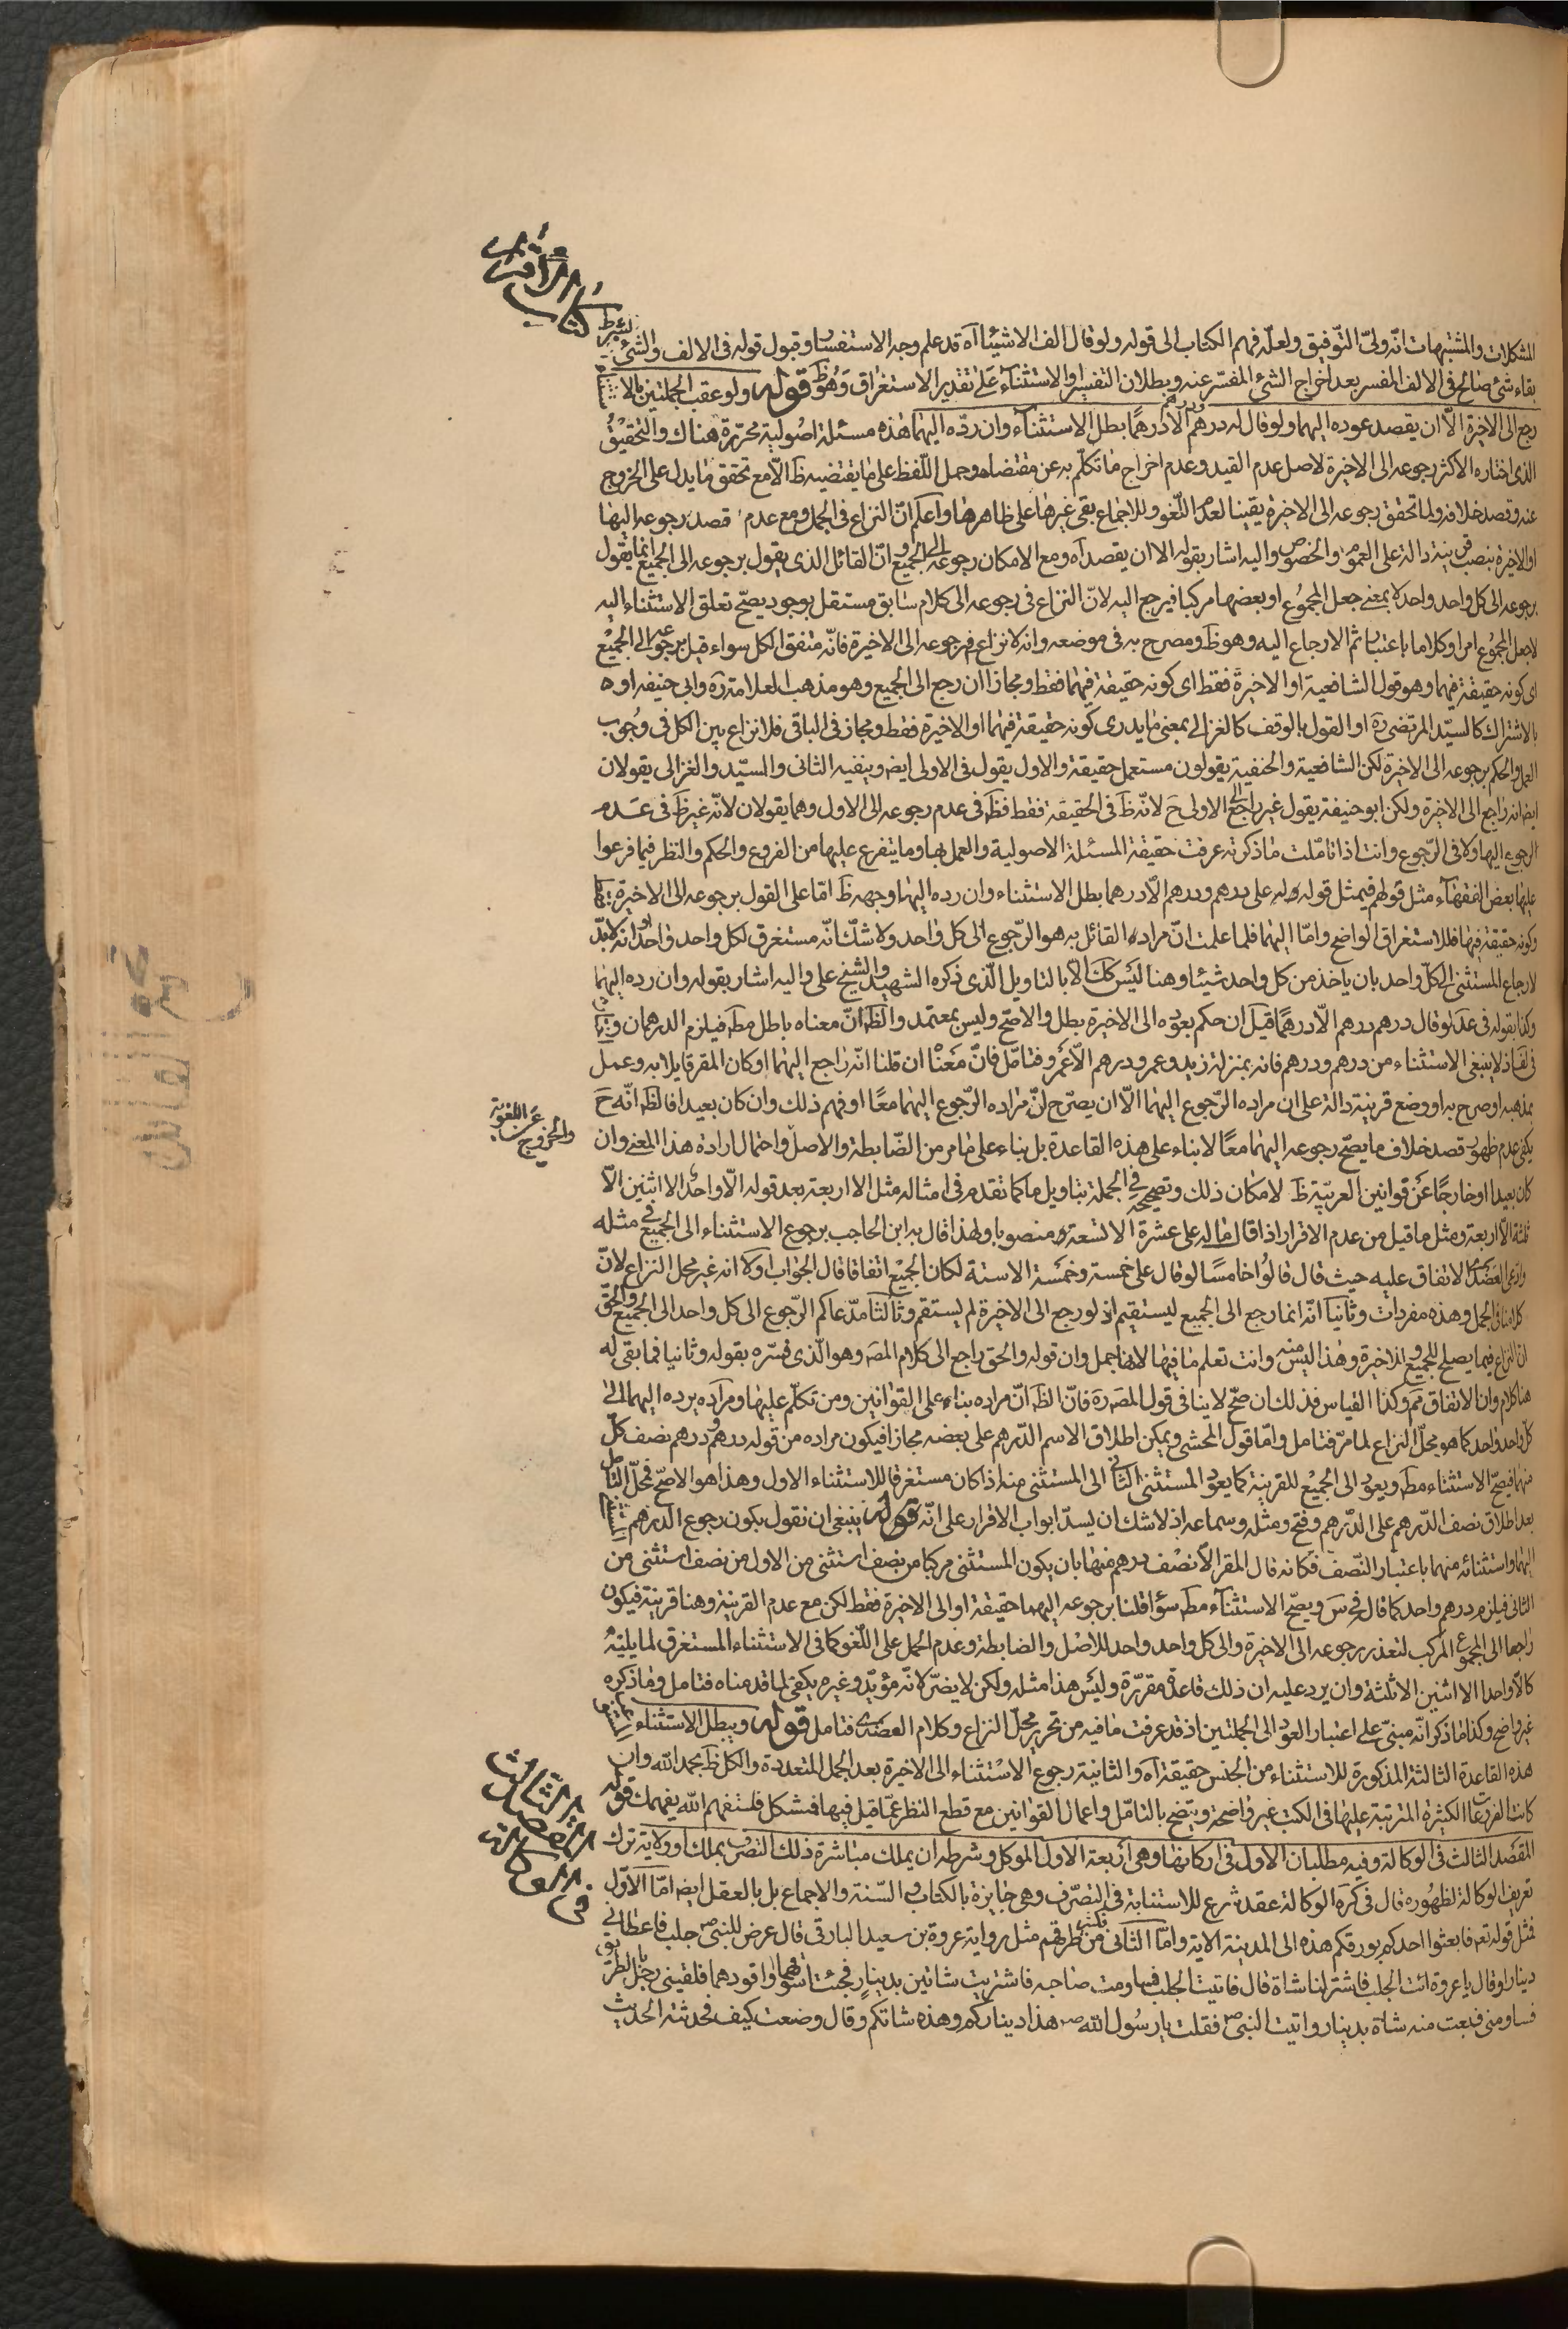 كتاب الاقرار
المشكلات والمشتبهات انّه ولىّ التّوفيق ولعلّه فهم الكتاب الى قوله ولو قال الف الا شيئا اه قد علم وجه الاستفسار وقبول قوله فى الالف والشئ بشرط
بقاء شئ صالح فى الالف المفسر بعد اخراج الشئ المفسّر عنه وبطلان التفسير والاستثناء على تقدير الاستغراق وهو ظ قوله ولو عقب الجملتين بالاستثناء
رجع الى الاخيرة الّا ان يقصد عوده اليهما ولو قال له درهم ودرهم الّا درهمًا بطل الاستثناء وان ردّه اليهما هذه مسئلة اصولية محرّرة هناك والتحقيق
الذى اختاره الاكثر رجوعه الى الاخيرة لاصل عدم القيد وعدم اخراج ما تكلّم به عن مقتضاه وحمل اللّفظ على ما يقتضيه ظ الّا مع تحقق ما يدل على الخروج
عنه وقصد خلافه ولما تحقق رجوعه الى الاخيرة يقينا لعدم اللّغو وللاجماع بقى غيرها على ظاهرها واعلم انّ النزاع فى الجمل ومع عدم قصد رجوعه اليها
او الاخيرة بنصب قرينة دالة على العموم والخصوص واليه اشار بقوله الا ان يقصد اه ومع الامكان رجوعه الى الجميع وانّ القائل الذى يقول برجوعه الى الجميع انما يقول
برجوعه الى كل واحد واحد لا بمعنى جعل المجموع او بعضها مركبا فيرجع اليه لانّ النزاع فى رجوعه الى كلام سابق مستقل بوجود يصحّ تعلق الاستثناء اليه
لا جعل المجموع امرا وكلاما باعتبار ثم الارجاع اليه وهو ظ ومصرح به فى موضعه وانه لا نزاع فى رجوعه الى الاخيرة فانّه متفق الكل سواء قيل برجوعه الى الجميع
اى كونه حقيقة فيهما وهو قول الشافعية او الاخيرة فقط اى كونه حقيقة فيهما فقط ومجازا ان رجع الى الجميع وهو مذهب العلامة ره وابى حنيفه او
بالاشتراك كالسيّد المرتضى ره او القول بالوقف كالغزالى بمعنى ما يدرى كونه حقيقة فيهما او الاخيرة فقط ومجاز فى الباقى فلا نزاع بين الكل فى وجوب
العمل والحكم برجوعه الى الاخيرة لكن الشافعية والحنفية يقولون مستعمل حقيقة والاول يقول فى الاولى ايضا وينفيه الثانى والسيّد والغزالى يقولان
ايضا انه راجع الى الاخيرة ولكن ابو حنيفة يقول غير راجع الى الاولى ح لانّه ظ فى الحقيقة فقط فظ فى عدم رجوعه الى الاول وهما يقولان لانّه غير ظ فى عدم
الرجوع اليها ولا فى الرّجوع وانت اذا تاملت ما ذكرته عرفت حقيقة المسئلة الاصولية والعمل بها وما يتفرع عليها من الفروع والحكم والنظر فيما فرعوا
عليها بعض الفقهاء مثل قولهم فيمثل قوله له على درهم ودرهم الّا درهما بطل الاستثناء وان رده اليهما وجهه ظ امّا على القول برجوعه الى الاخيرة
وكونه حقيقة فيها فللاستغراق الواضح وامّا اليهما فلما علمت انّ مراده القائل به هو الرّجوع الى كل واحد ولا شكّ انّه مستغرق لكل واحد واحد وانه لا بدّ
لارجاع المستثنى الى كلّ واحد بان ياخذ من كل واحد شيئا وهنا ليس كك الّا بالتاويل الّذى ذكره الشهيد والشيخ على واليه اشار بقوله وان رده اليهما
وكذا بقوله فى عد لو قال درهم درهم الّا درهمًا قيل ان حكم بعوده الى الاخيرة بطل والا صحّ وليس بمعتمد والظ انّ معناه باطل مط فيلزم الدرهمان
اذ لا ينبغى الاستثناء من درهم ودرهم فانه بمنزلة زيد وعمرو ودرهم الّا عمرو فتامل فانّ معنا ان قلنا انّه راجع اليهما او كان المقر قايلا به وعمل
بمذهبه او صرح به او وضع قرينة دالة على ان مراده الرّجوع اليهما الّا ان يصرّح بانّ مراده الرّجوع اليهما معًا او فهم ذلك وان كان بعيدا فالظ انّه ح
يكفى عدم ظهور قصد خلاف ما يصحّ رجوعه اليهما معًا لا بناء على هذه القاعدة بل بناء على ما مر من الضّابطة والاصل واحتمال ارادة هذا المعنى وان
عن اللغوية والخروج
كان بعيدا او خارجًا عن قوانين العربيّة ظ لامكان ذلك وتصحيحه فى الجملة بتاويل ما كما تقدم فى امثاله مثل الا اربعة بعد قوله الّا واحدا الا اثنين الّا
ثلثة الّا اربعة ومثل ما قيل من عدم الاقرار اذا قال ما له على عشرة الا تسعة منصوبا ولهذا قال به ابن الحاجب برجوع الاستثناء الى الجميع فى مثله
وادعى العضدى الاتفاق عليه حيث قال قالوا خامسًا لو قال على خمسة وخمسة الا ستة لكان الجميع اتفاقا قال الجواب اولا انه غير محل النزاع لانّ
كلامنا فى الجمل وهذه مفردات وثانيا انّه انما رجع الى الجميع ليستقيم اذ لو رجع الى الاخيرة لم يستقم وثالثا مدّعاكم الرّجوع الى كل واحد الى الجميع والحقّ
ان النزاع فيما يصلح للجميع والاخيرة وهذا ليس منه وانت تعلم ما فيها لانها جمل وان قوله والحق راجع الى كلام المصـ وهو الّذى فسّره بقوله وثانيا فما بقى له
هنا كلام وان الاتفاق مم وكذا القياس فذلك ان صحّ لا ينافى قول المصـ ره فانّ الظ انّ مراده بناء على القوانين ومن تكلّم عليها ومراده يرده اليهما الى
كلّ واحد واحد كما هو محلّ النزاع لما مرّ فتامل وامّا قول المحشى ويمكن اطلاق الاسم الدّرهم على بعضه مجازا فيكون مراده من قوله درهم ودرهم نصف كلّ
منهما فيصحّ الاستثناء مط ويعود الى الجميع للقرينة كما يعود المستثنى الثانى الى المستثنى منه اذا كان مستغرقا للاستثناء الاول وهذا هو الاصحّ فمحلّ التامل
بعد اطلاق نصف الدّرهم على الدّرهم وفتح ومثله وسماعه اذ لا شك ان يسدّ ابواب الاقرار على انّه قوله ينبغى ان نقول يكون رجوع الدرهم
اليهما واستثنائه منهما باعتبار النّصف فكانه قال المقر الّا نصف درهم منهما بان يكون المستثنى مركبا من نصف استثنى من الاول من نصف استثنى من
الثانى فيلزم درهم واحد كما قال فى س ويصحّ الاستثناء مط سؤا قلنا برجوعه اليهما حقيقة او الى الاخيرة فقط لكن مع عدم القرينة وهنا قرينة فيكون
راجعا الى المجموع المركب لتعذر رجوعه الى الاخيرة والى كل واحد واحد للاصل والضابطة وعدم الحمل على اللّغو كما فى الاستثناء المستغرق لما يليه
كالّا واحدا الا اثنين الا ثلثة وان يرد عليه ان ذلك قاعدة مقرّرة وليس هذا مثله ولكن لا يضرّ لانّه مؤيّد وغيره يكفى لما قدمناه فتامل وما ذكره
غير واضح وكذا ما ذكر انّه مبنىّ على اعتبار العود الى الجملتين اذ قد عرفت ما فيه من تحرير محلّ النزاع وكلام العضدى فتامل قوله ويبطل الاستثناء
هذه القاعدة الثالثة المذكورة للاستثناء من الجنس حقيقة اه والثانية رجوع الاستثناء الى الاخيرة بعد الجمل المتعددة والكل ظ بحمد الله وان
كانت الفروعات الكثيرة المترتبة عليها فى الكتب غير واضحة ويتضح بالتامّل واعمال القوانين مع قطع النظر عمّا قيل فيها فتشكل فلتفهم الله يفهمك قوله
المقصد الثالث فى الوكالة
المقصد الثالث فى الوكالة وفيه مطلبان الاول فى اركانها وهى اربعة الاول الموكل وشرطه ان يملك مباشرة ذلك التصرّف بملك او ولاية ترك
تعريف الوكالة لظهوره قال فى كره الوكالة عقد شرع للاستنابة فى التصرّف وهى جايزة بالكتاب والسّنة والاجماع بل بالعقل ايضا امّا الاوّل
فمثل قوله تعه فابعثوا احدكم بورقكم هذه الى المدينة الاية وامّا الثانى فمن طرقهم مثل رواية عروة بن سعيد البارقى قال عرض للنبى ص جلب فاعطانى
دينارا وقال يا عروة ائت الجلب فاشتر لنا شاة قال فاتيت الجلب فساومت صاحبه فاشتريت شاتين بدينار فجئت اسوقهما او اقودهما فلقينى رجل بالطريق
فساومنى فبعت منه شاة بدينار واتيت النبى ص فقلت يا رسول الله ص هذا ديناركم وهذه شاتكم وقال وضعت كيف فحدثته الحديث